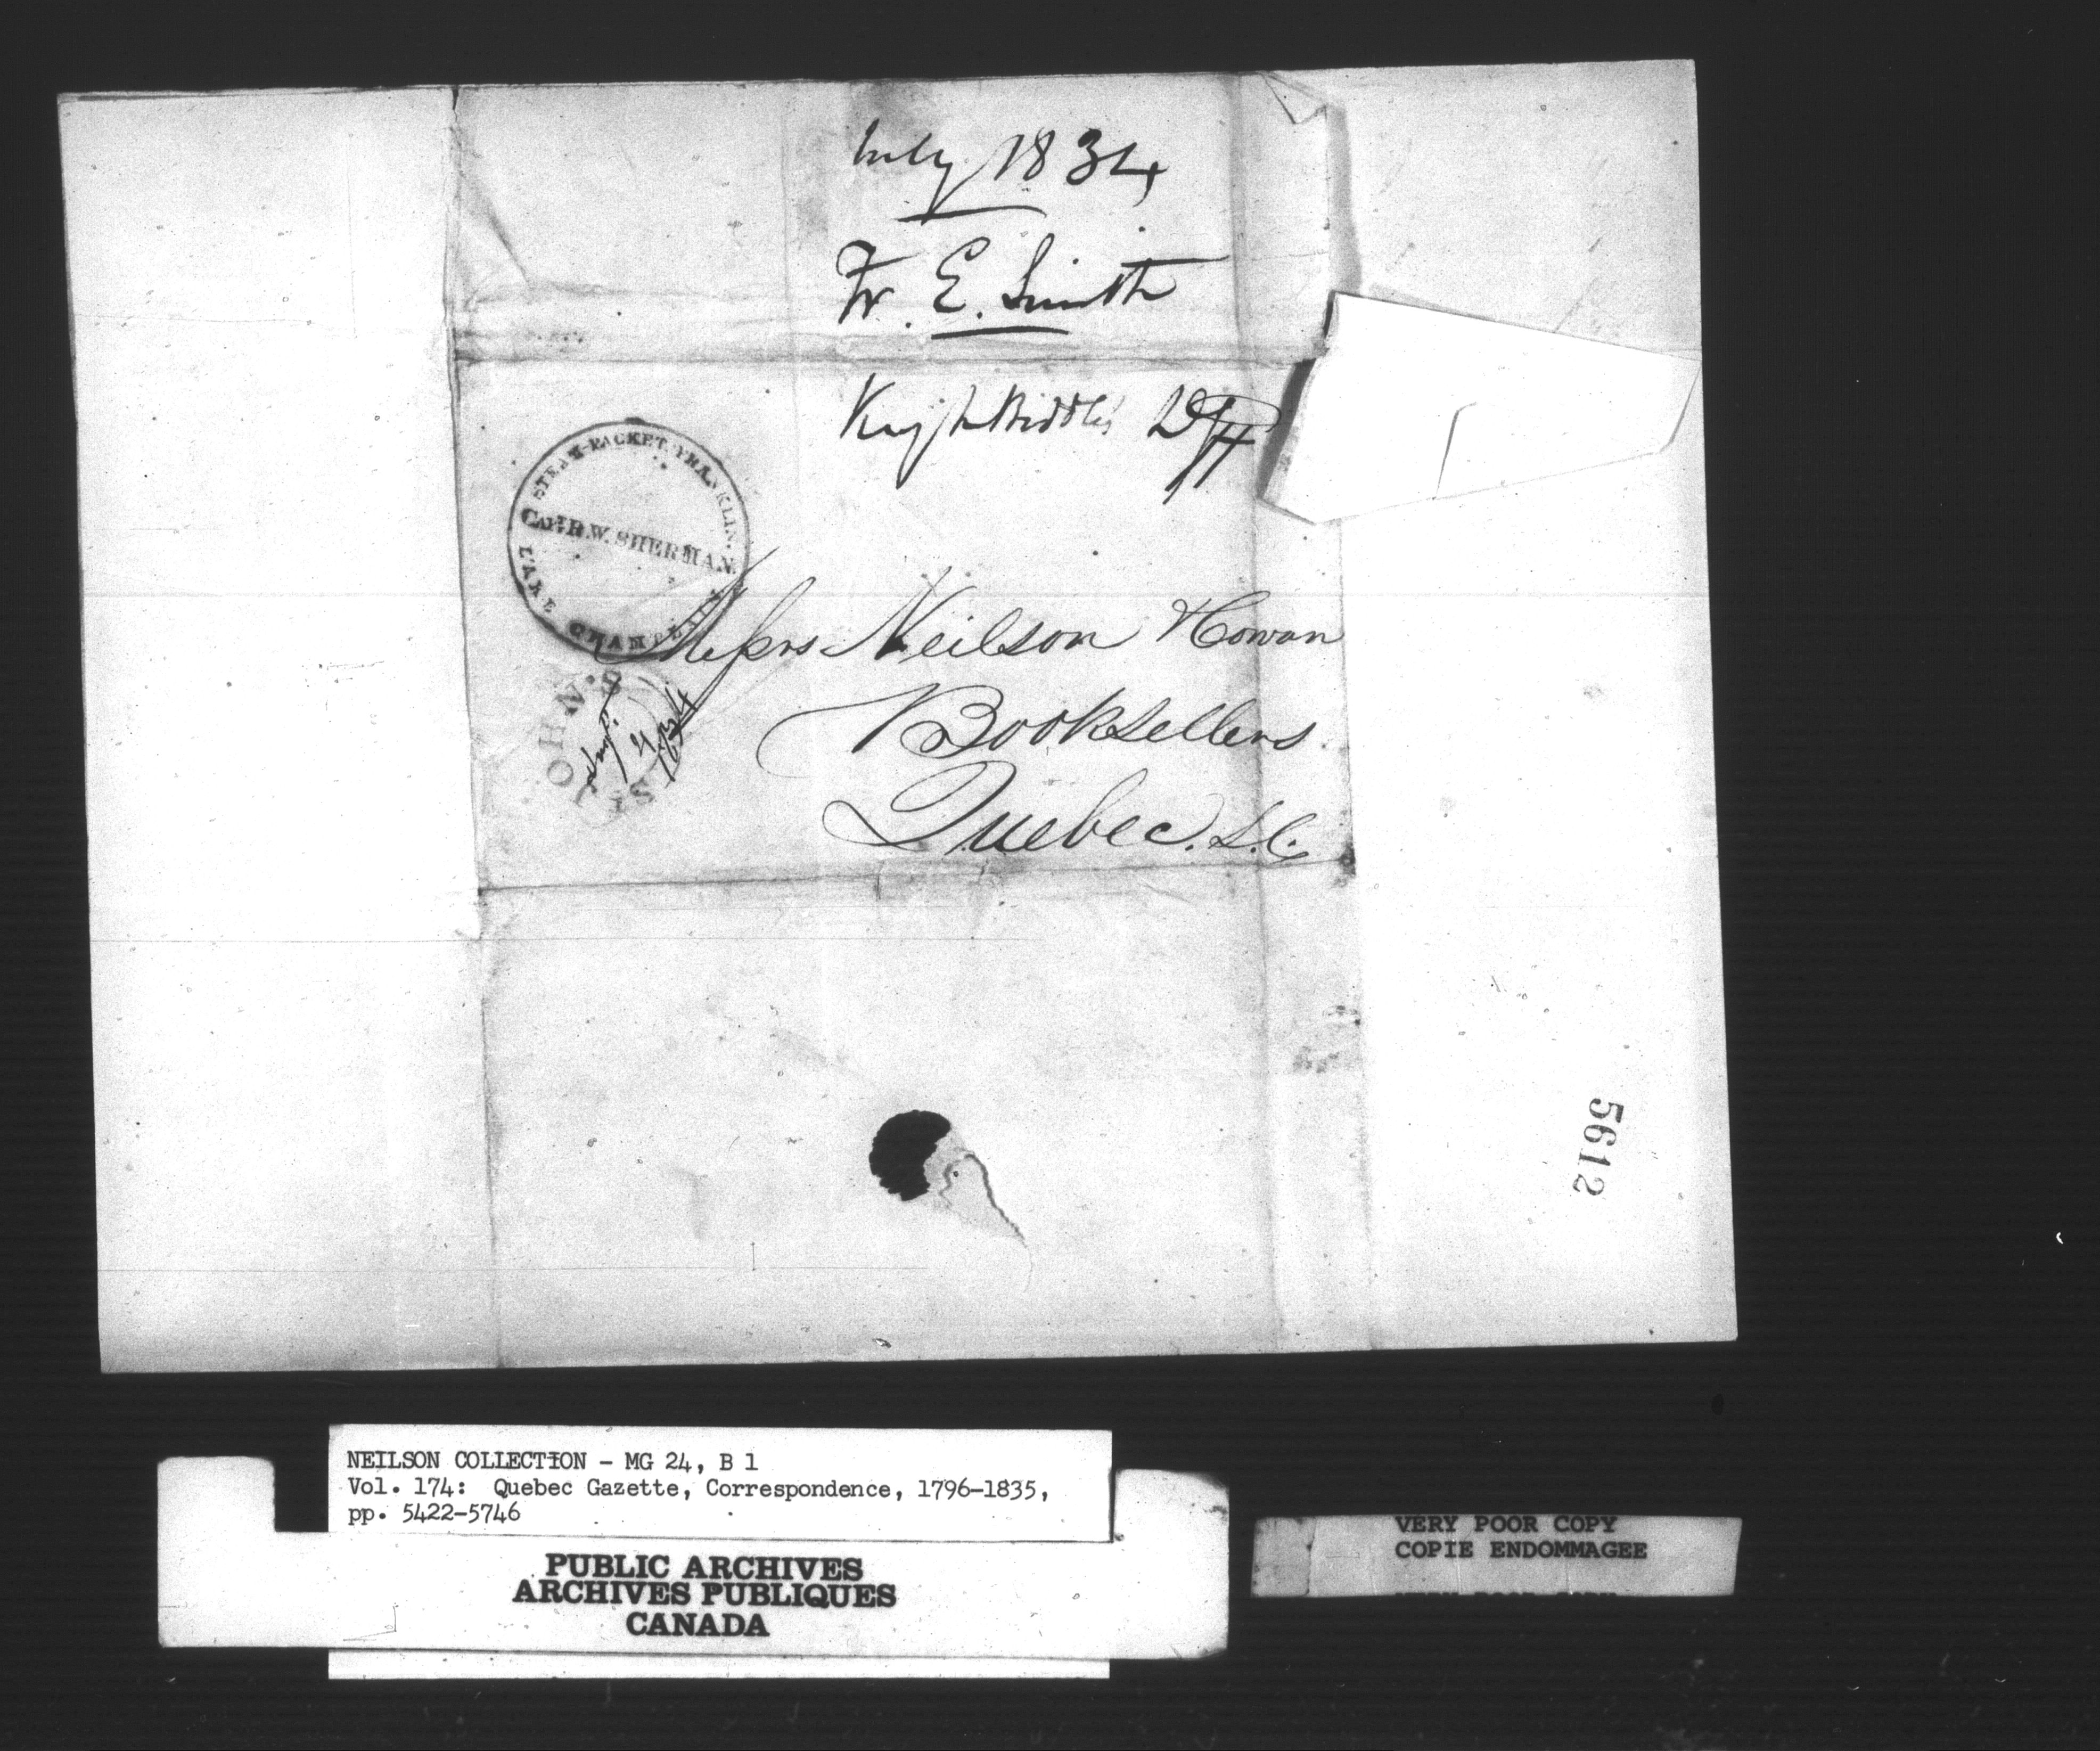 July 1834
Fr. E. Smith
STEAM-PACKET FRANKLIN.
CAPT. R.W. SHERMAN.
LAKE CHAMPLAIN
Messrs Neilson & Cowan
Booksellers
Quebec. L.C.
ST. JOHN'S
4
1834
5612
NEILSON COLLECTION - MG 24, B 1
Vol. 174: Quebec Gazette, Correspondence, 1796-1835,
pp. 5422-5746
PUBLIC ARCHIVES
ARCHIVES PUBLIQUES
CANADA
VERY POOR COPY
COPIE ENDOMMAGEE